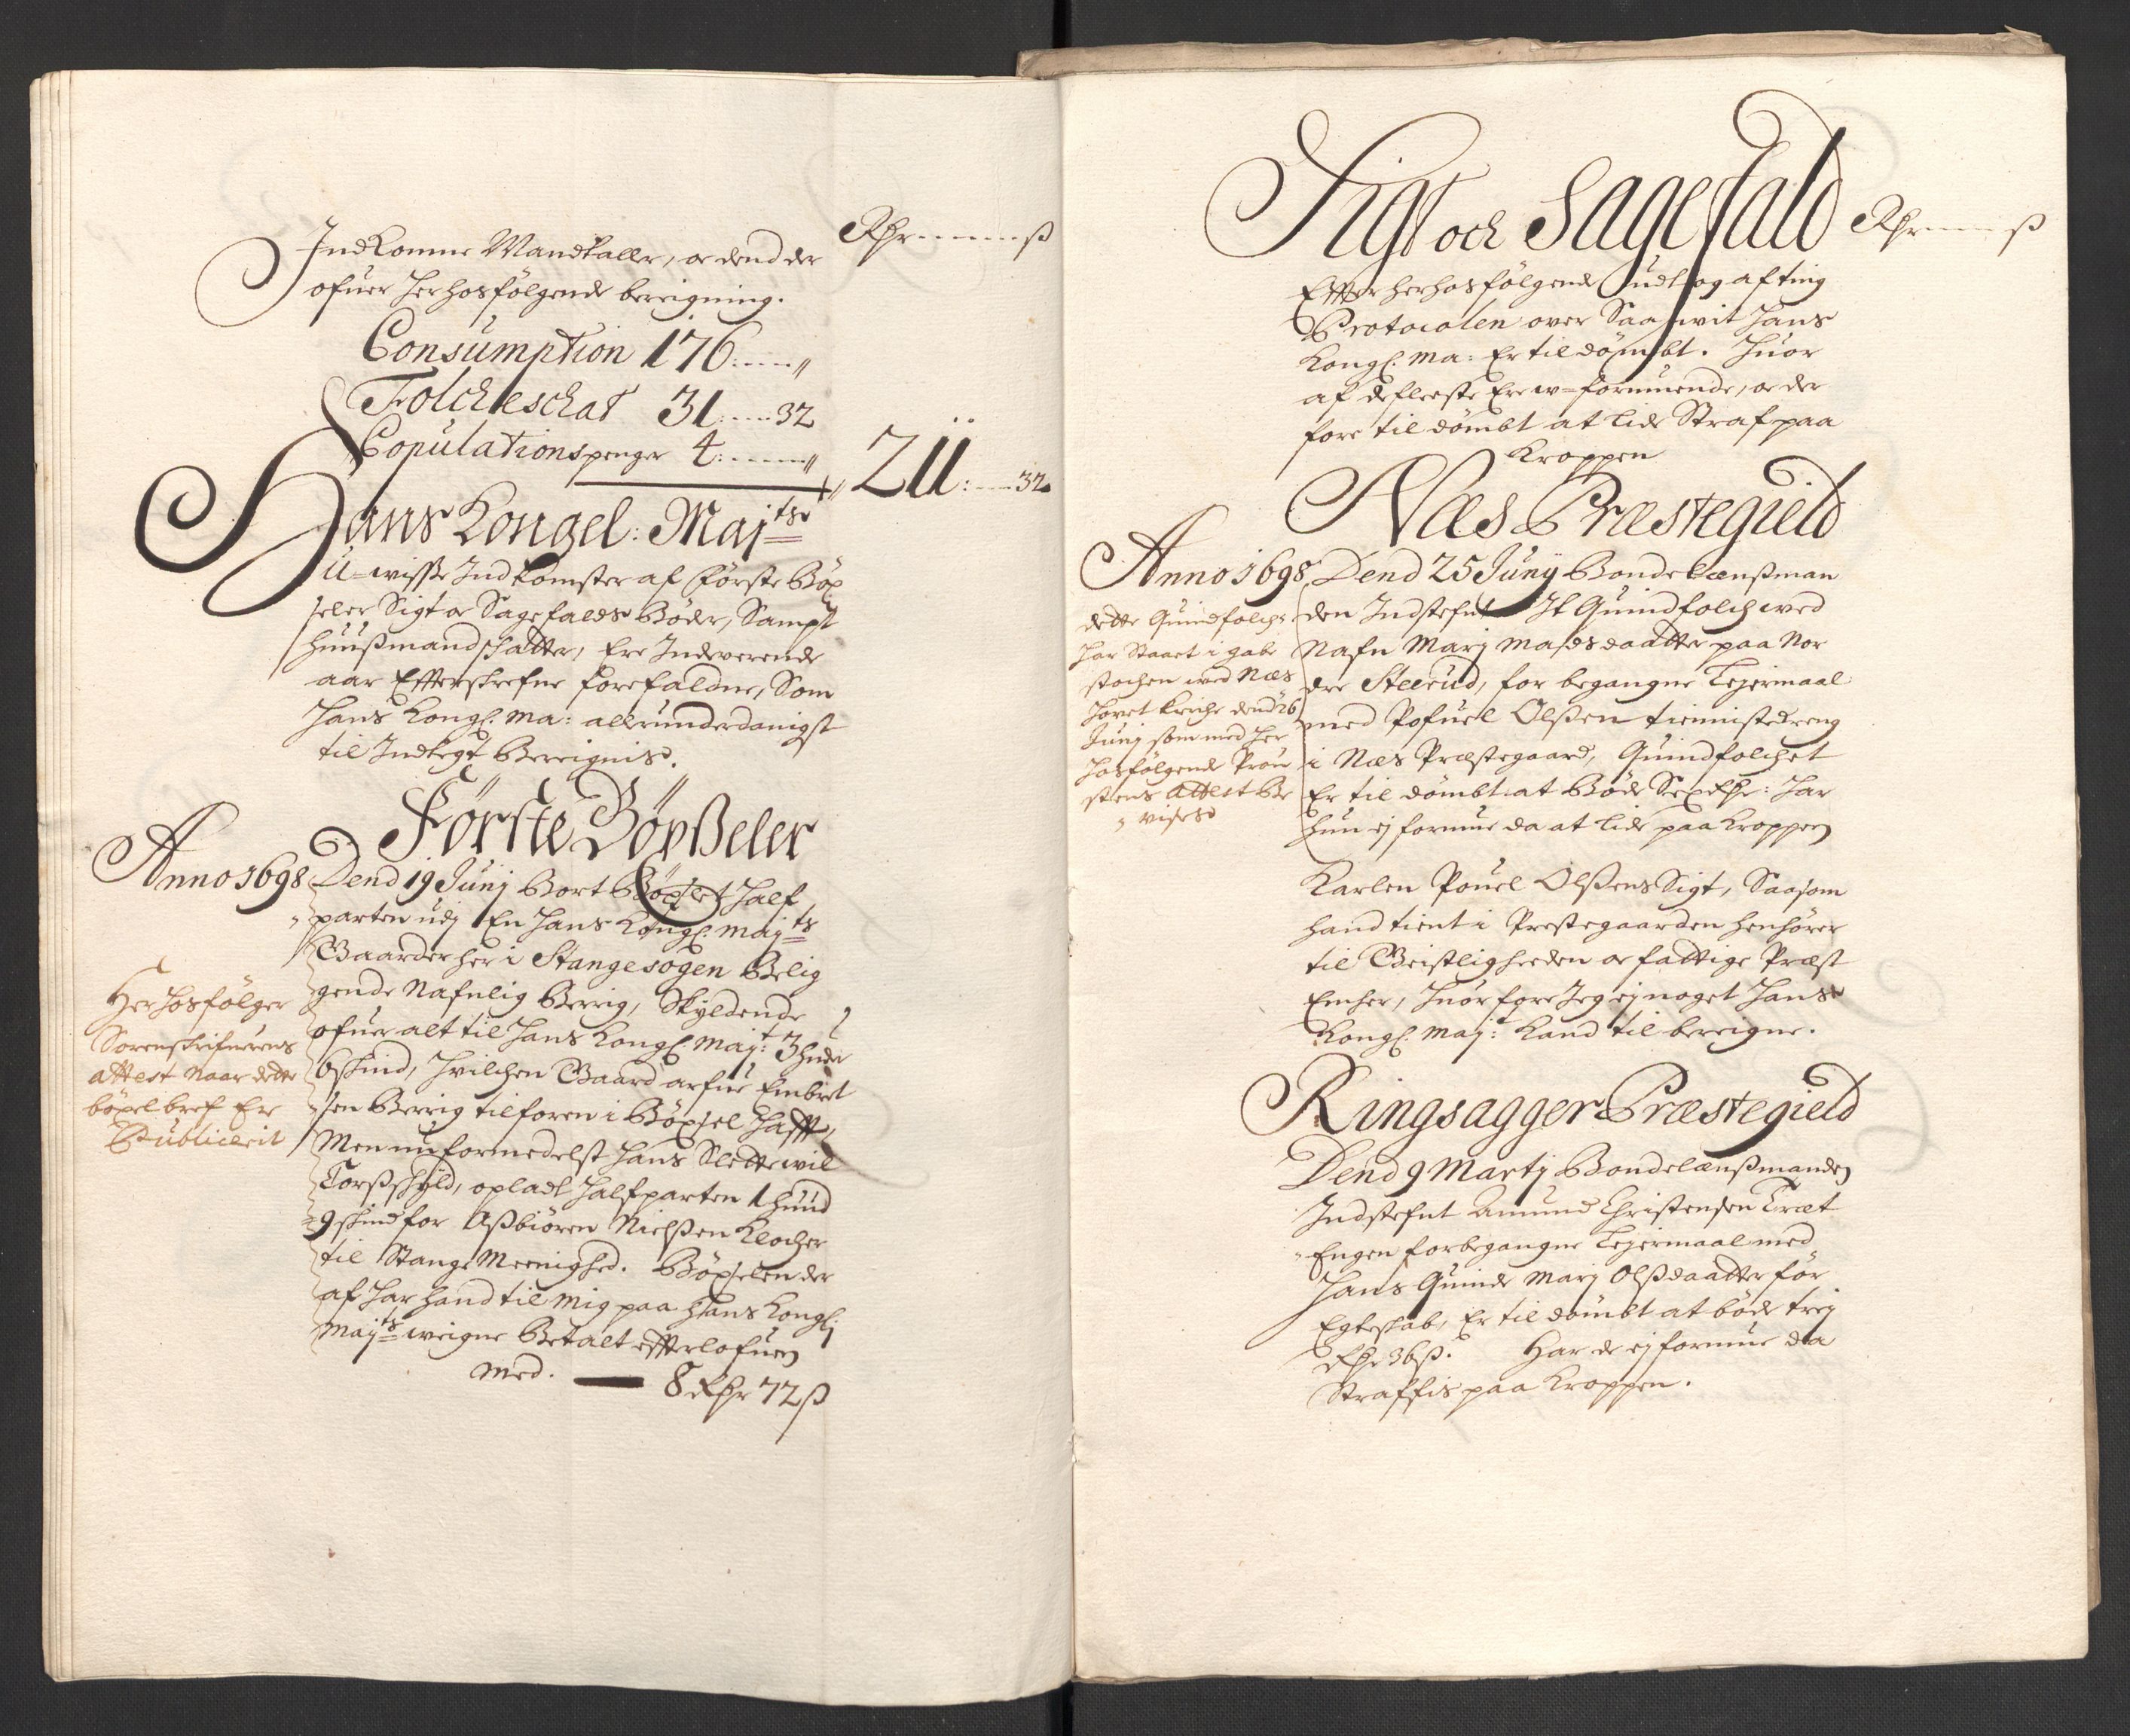 Rdr ß
Indkomne Mandtaller, oc dend der
ofuer herhosfølgende bereigning.
Consumption 176:----//
Folckeschat 31:----32
Copulationspenger 4:----// 211:----32
Hans Kongel: Maj:ts
U-wisse Indkomster af Første Böx
seler Sigt oc Sagefalds Böder, Sampt
huußmandschatter, Ere Indeverende
aar Efterskrefne forefaldne, Som
Hans Kongl. Ma: allerunderdanigst
til Indtegt Bereignis.
Förste Böxßeler
Anno 1698 Dend 19 Junj Bort Böxlet half
parten udj En Hans Kongl. Maj:ts
Gaarder her i Stangesogen Belig
gende Nafnlig Berrig, Skyldende
ofuer alt til Hans Kongl. Maj:t 3 hude
6 skind, hvilchen Gaard arfue Embret
sen Berrig tilforen i Böxsel hafft,
Men nu formedelst hans Slette wil
Torßskyld, opladt halfparten 1 huud
9 skind for Aßbiören Nielßen Klocher
til Stange Meenighed. Böxselen der
af har hand til mig paa Hans Kongl:
Maj:ts weigne Betalt effter lofuen
med. — 8 Rdr 72 ß
Her hos følger
Sorenskrifuerens
attest Naar dette
böxel bref Er
Publicerit
Sigt och Sagefald Rdr ß
Effter herhosfølgende udtog af ting
Protocolen over Saa wit Hans
Kongl. Ma: Er tildömbt. Huor
af de fleeste Ere w-formuende, oc der
fore til dömbt at lide Straf paa
Kroppen
Næs Præstegield
Anno 1698 Dend 25 Junij Bondelænßman
den Indstefnt It Quindfolch wed
Nafn Marj Madsdaatter paa Nor
dre Steerud, for begangne Lejermaal
med Pofuel Olßen tienistedreng
i Næs Præstegaard, Quindfolchet
Er til dömbt at Böde Sex Rdr: Har
hun ej formue da at lide paa kroppen
dette Quindfolch
har Staaet i gabe
stochen wed Næs
hovet kirche dend 26
Junj som med her
hosfølgende Prou
stens Attest Be
vises
Karlen Pouel Olßens Sigt, Saasom
hand tient i Prestegaarden henhörer
til Geistligheeden oc fattige Præst
Encher, huorfore Jeg ej noget Hans
Kongl. Maj: kand til bereigne.
Ringsagger Præstegield
Dend 9 Martj Bondelænßmanden
Indstefnt Amund Christensen Træt
Engen for begangne Lejermaal med
hans Quinde Marj Olßdaatter för
Egteskab, Er til dömbt at böde trej
Rdr 36 ß. Har de ej formue da
Straffis paa Kroppen.